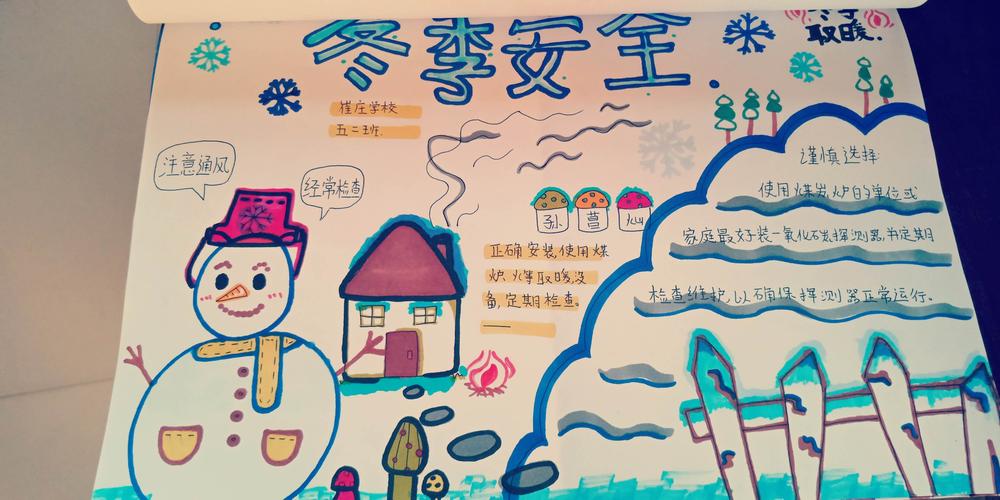 冬季安全
冬季
取暖.
崔庄学校
五二班.
注意通风
经常检查
孙
菖
灿
正确安装,使用煤
炉火等取暖设
备,定期检查。
谨慎选择
使用煤炭炉的单位或
家庭最好装一氧化碳探测器,并定期
检查维护,以确保探测器正常运行。